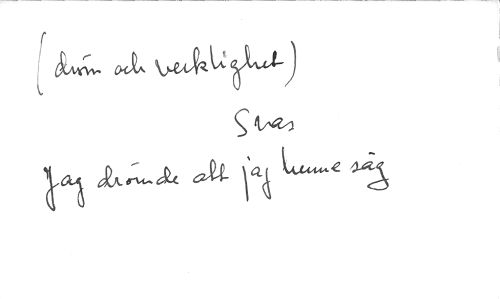 (dröm och verklighet)
Svar
Jag drömde att jag henne såg